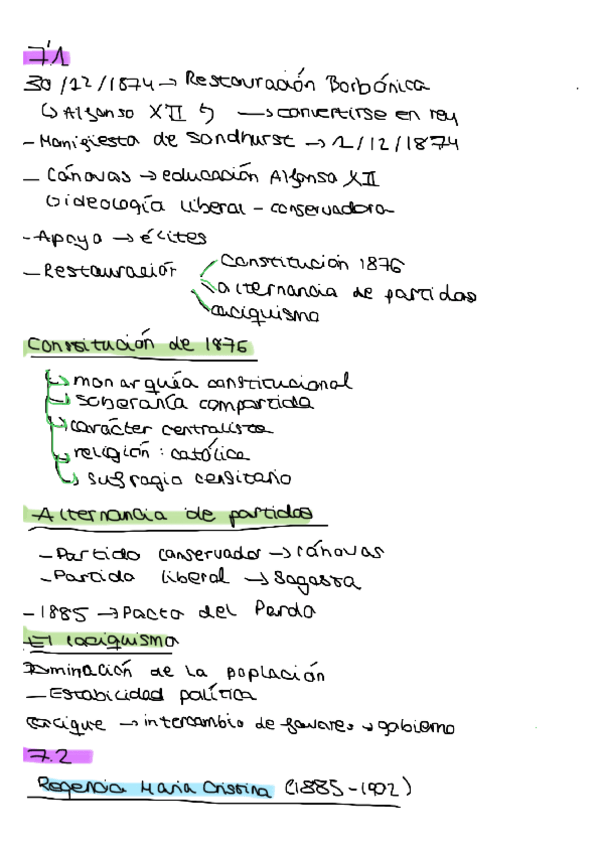 7.1
30/12/1874 → Restauración Borbónica
↳ Alfonso XII ↰ → convertirse en rey
- Manifiesta de Sandhurst → 1/12/1874
- Cánovas → educación Alfonso XII
↳ ideología liberal - conservadora
- Apoyo → élites
- Restauración
Constitución 1876
alternancia de partidos
caciquismo
Constitución de 1876
↳ monarquía constitucional
↳ soberanía compartida
↳ carácter centralista
↳ religión: católica
↳ sufragio censitario
Alternancia de partidos
- Partido conservador → Cánovas
- Partido liberal → Sagasta
- 1885 → Pacto del Pardo
El caciquismo
Dominación de la poplación
- Estabilidad política
Cacique → intercambio de favores → gobierno
7.2
Regencia María Cristina (1885-1902)